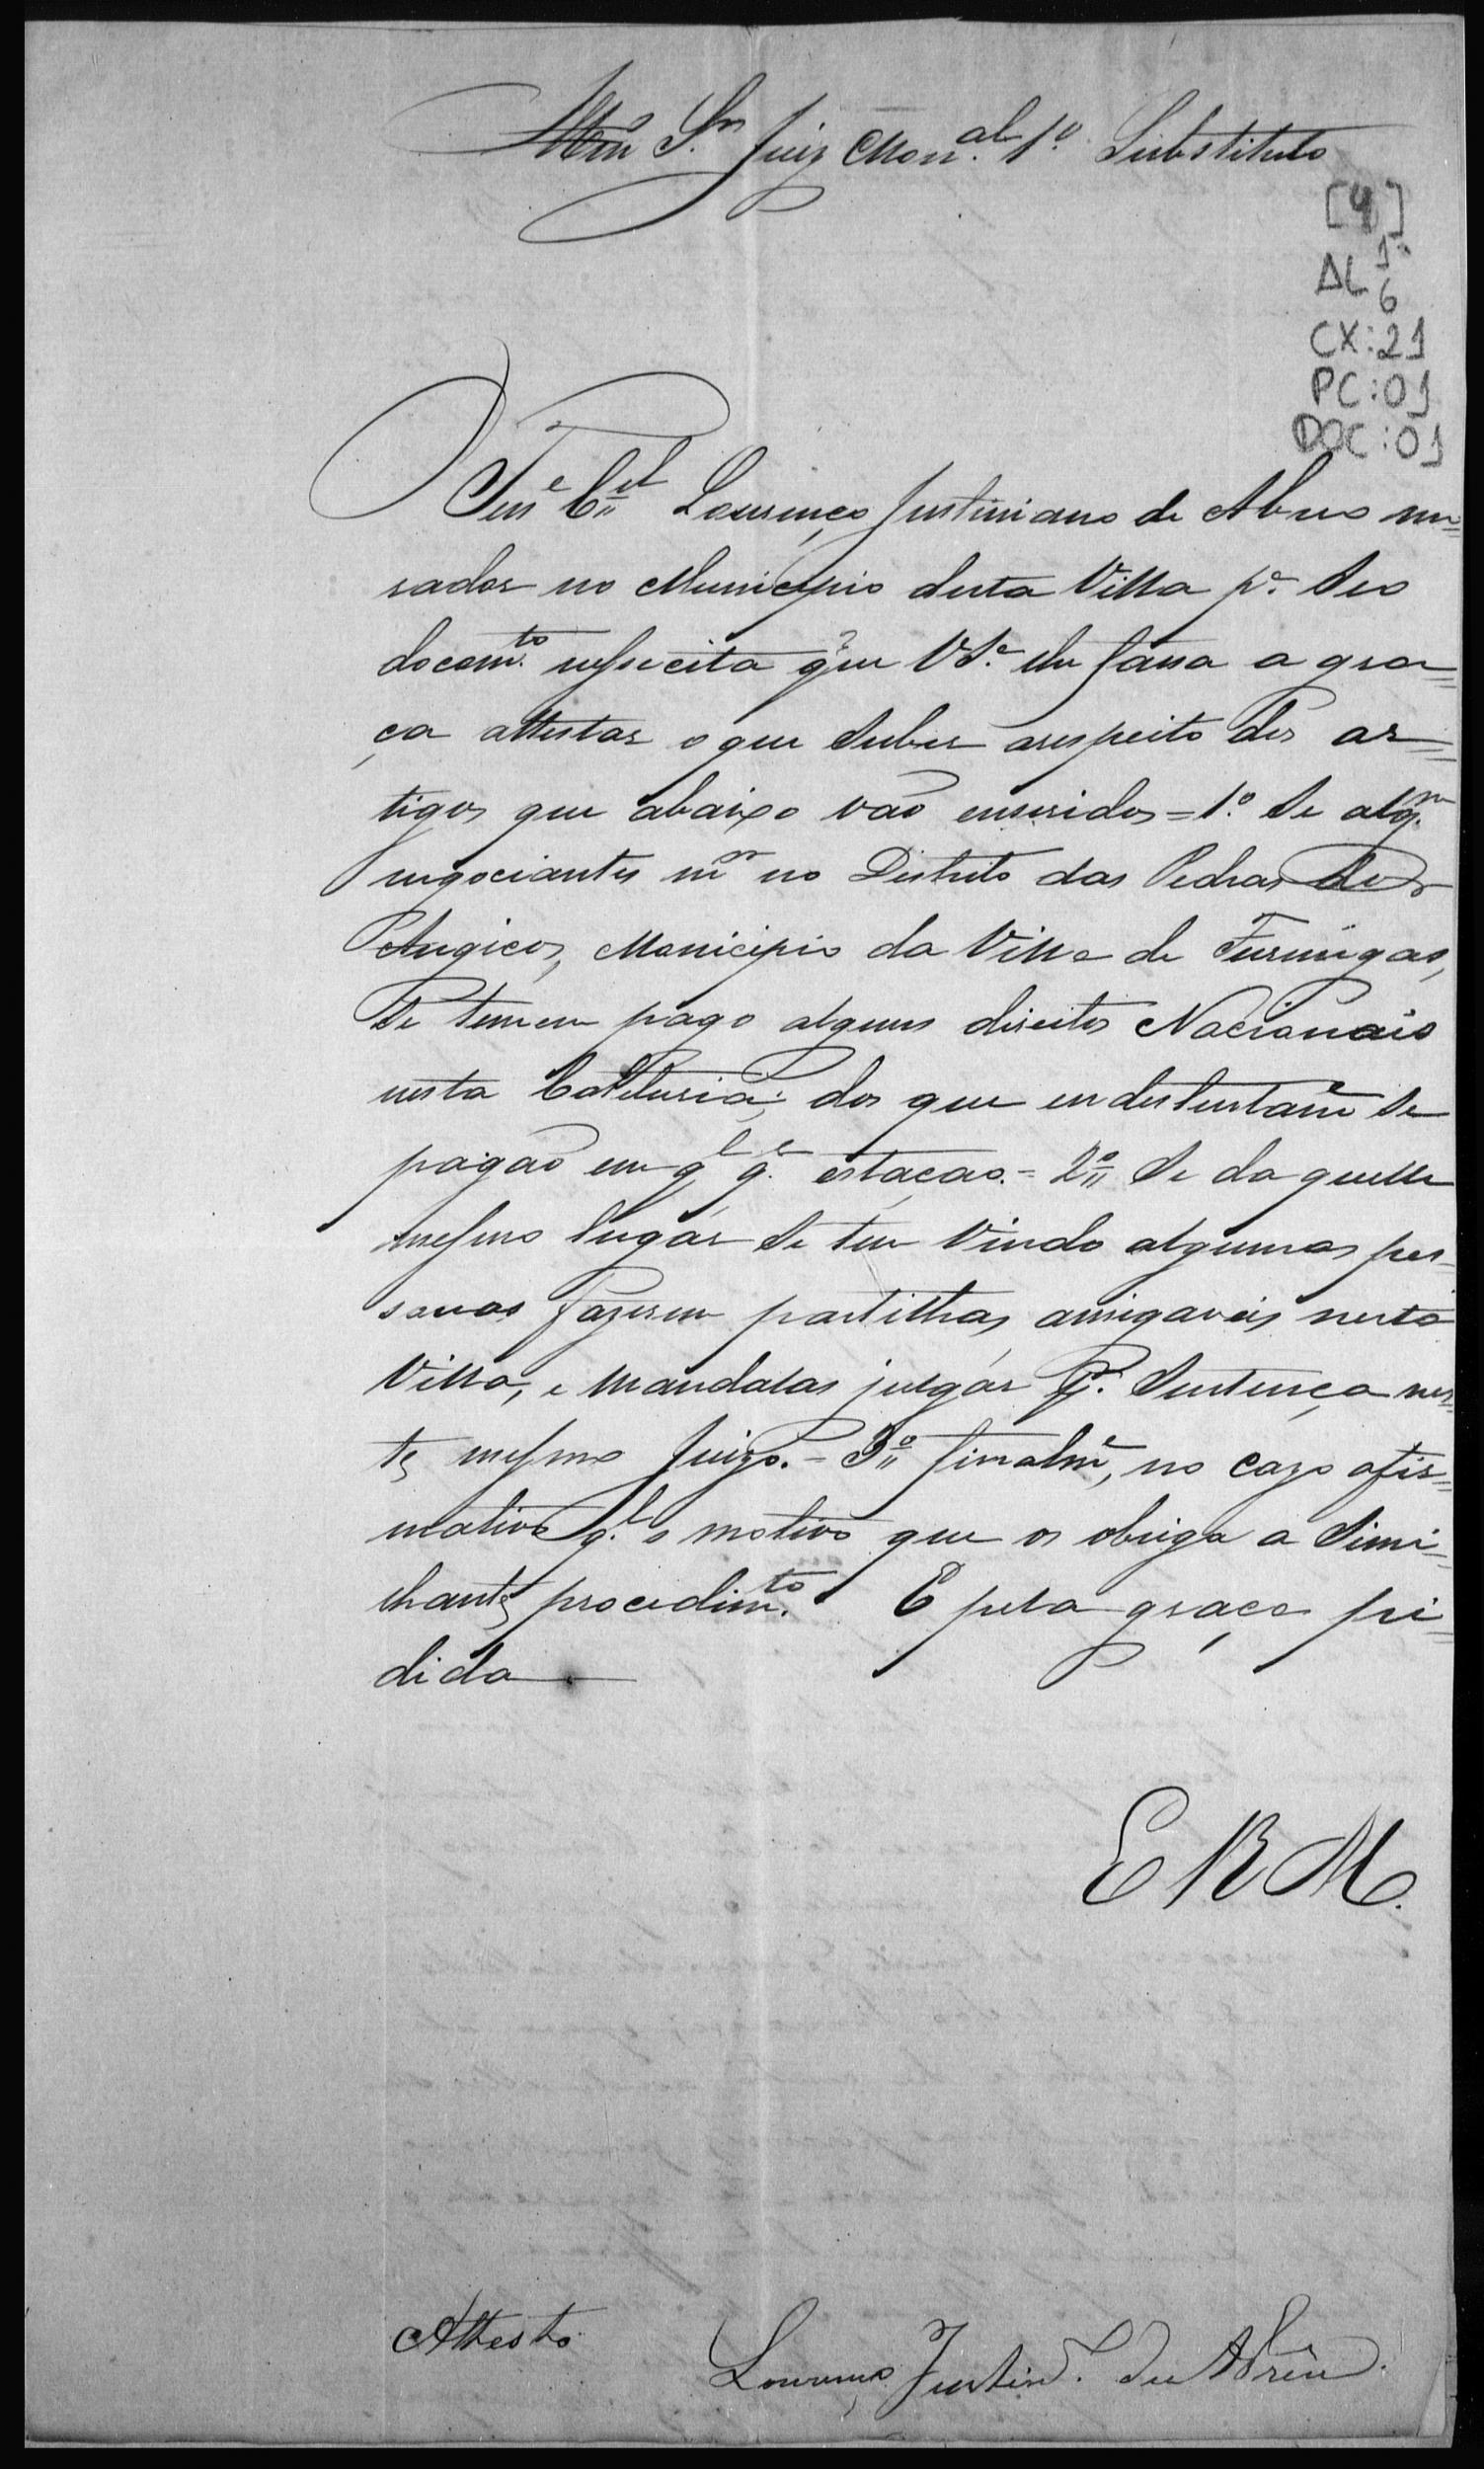 Illmo Snr Juiz Mon.al 1º Substituto
[4]
AL 1ª
6
CX:21
PC:01
DOC:01
O Tene Cel Lourenço Justiniano de Abreo mo=
rador no Municipio desta Villa pª seo
docomto nessecita que VSª lhe fassa a gra=
ça attestar o que suber arespeito dos ar=
tigos que abaixo vão enseridos = 1º Se algns
negociantes mres no Destrito das Pedras dos
Angicos, Monicipio da Villa de Furmigas,
Se temem pago alguns direitos Nacionais
nesta Colleturia; dos que endestentame Se
pagão em ql qr estação. = 2º Se da quelle
mesmo lugár Se tem vindo algumas pes-
sonas fazerem partilhas amigaveis nesta
Villa, e mandalas julgár p. Sentença nes=
te mesmo Juizo. = 3º finalme, no cazo afir=
mativo ql o motivo que os obriga a Simi=
lhante procedimto. E pela graça pi=
dida
E R M.
Attesto
Lourenço Justino. de Abreu.